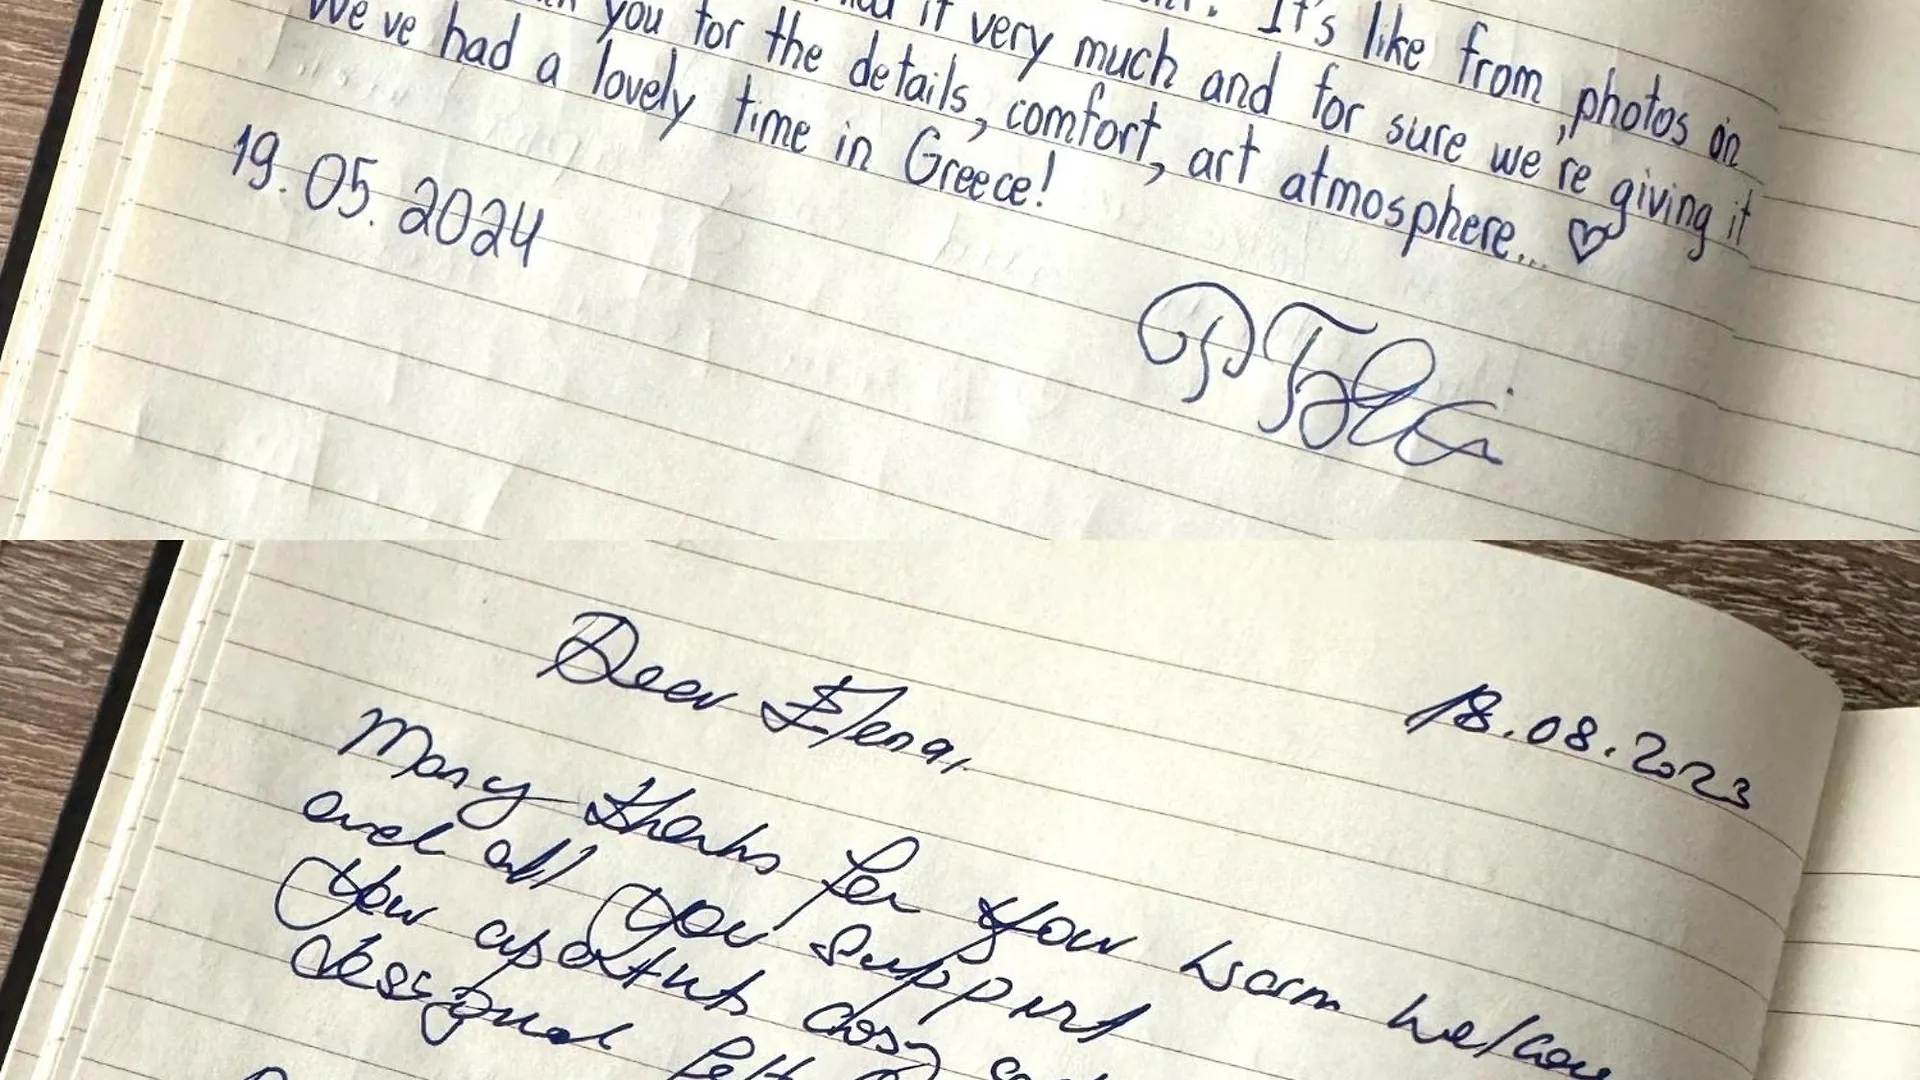 It's like from ,photos on
it very much and for sure we're giving it
you for the details, comfort, art atmosphere... ♡
We've had a lovely time in Greece!
19.05.2024
18.08.2023
Dear Elena,
Many thanks for your warm welcome
and all your support
Your cosy
designed